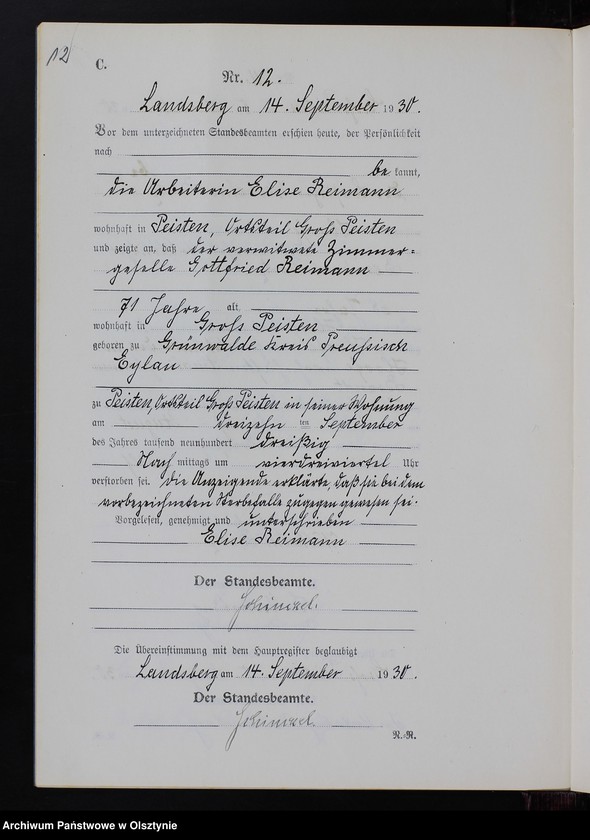 12
C.
Nr. 12.
Landsberg am 14. September 1930.
Vor dem unterzeichneten Standesbeamten erschien heute, der Persönlichkeit
nach
be kannt,
die Arbeiterin Elise Reimann
wohnhaft in Peisten, Ortsteil Groß Peisten
und zeigte an, daß der verwitwete Zimmer=
geselle Gottfried Reimann
71 Jahre alt,
wohnhaft in Groß Peisten
geboren zu Grünwalde Kreis Preußisch
Eylau
zu Peisten, Ortsteil Groß Peisten in seiner Wohnung
am dreizehn ten September
des Jahres tausend neunhundert dreißig
Nach mittags um vierdreiviertel Uhr
verstorben sei. Die Anzeigende erklärte, daß sie bei dem
vorbezeichneten Sterbefalle zugegen gewesen sei.
Vorgelesen, genehmigt und unterschrieben
Elise Reimann
Der Standesbeamte.
Die Übereinstimmung mit dem Hauptregister beglaubigt
Landsberg am 14. September 1930.
Der Standesbeamte.
R.-R.
Archiwum Państwowe w Olsztynie